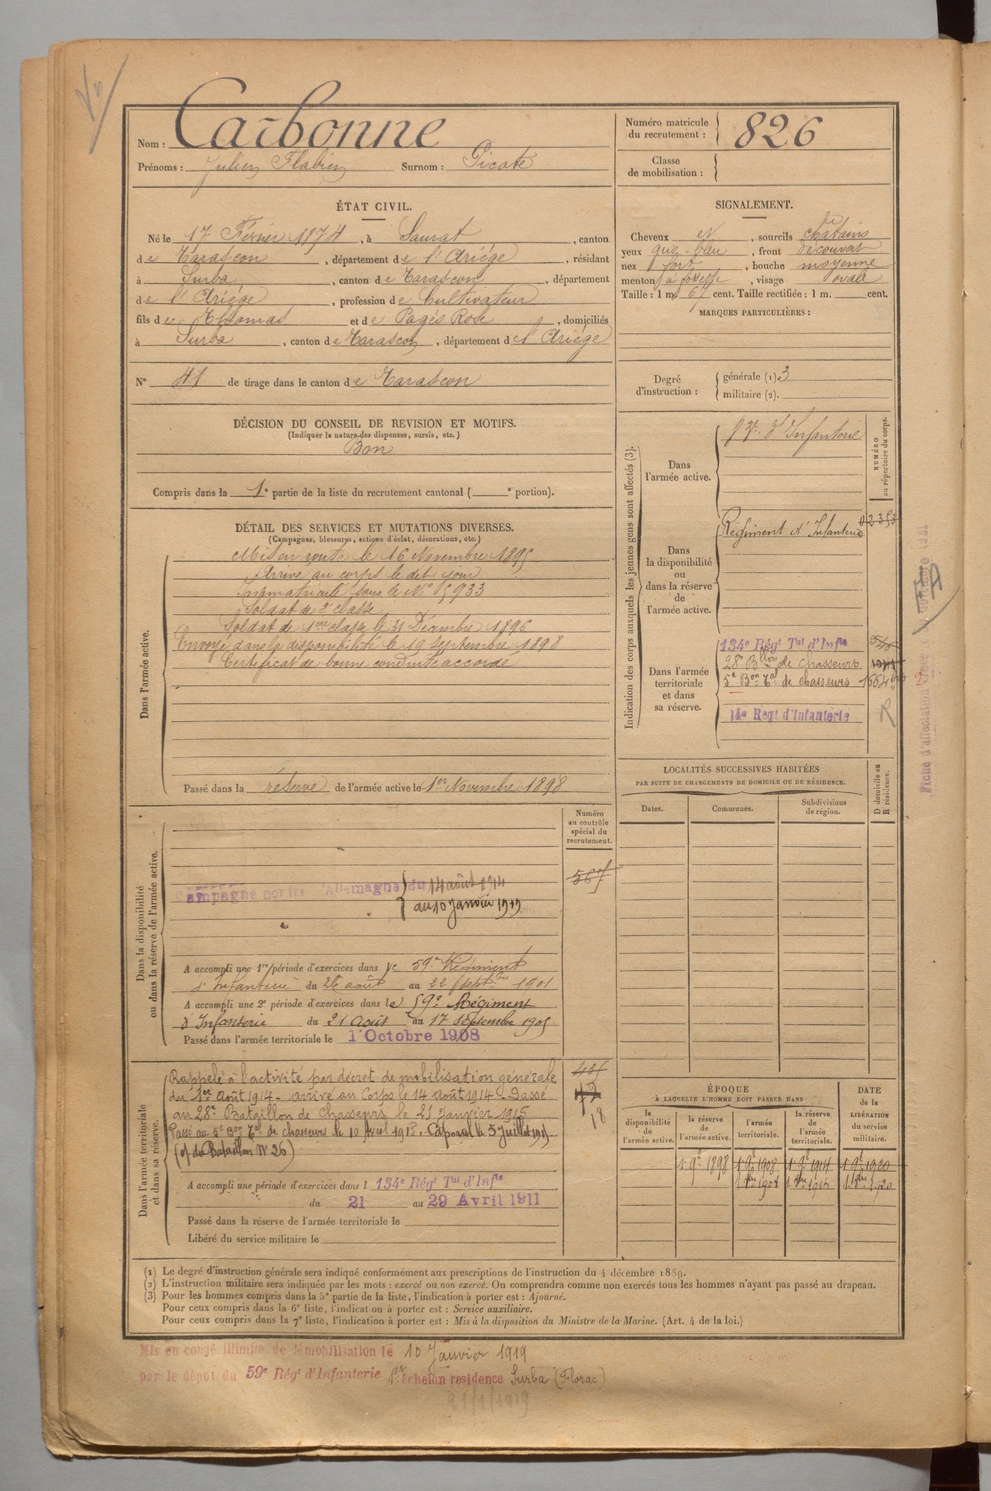 Nom : Carbonne
Prénoms : Julien Flabien Surnom : Picate
Numéro matricule du recrutement : 826
Classe de mobilisation :
ÉTAT CIVIL.
Né le 17 Février 1874, à Saurat, canton
de Tarascon, département de l'Ariége, résidant
à Surba, canton de Tarascon, département
de l'Ariége, profession de Cultivateur
fils de Thomas et de Pagès Rose, domiciliés
à Surba, canton de Tarascon, département de l'Ariége
N° 41 de tirage dans le canton de Tarascon
SIGNALEMENT.
Cheveux et, sourcils chatains
yeux gris-bleu, front découvert
nez fort, bouche moyenne
menton à fossette, visage ovale
Taille : 1 m. 67 cent. Taille rectifiée : 1 m. cent.
MARQUES PARTICULIÈRES :
Degré d'instruction : générale (1) 3
militaire (2).
DÉCISION DU CONSEIL DE REVISION ET MOTIFS.
(Indiquer la nature des dispenses, sursis, etc.)
Bon
Compris dans la 1e partie de la liste du recrutement cantonal ( e portion).
DÉTAIL DES SERVICES ET MUTATIONS DIVERSES.
(Campagnes, blessures, actions d'éclat, décorations, etc.)
Dans l'armée active.
Mis en route le 16 Novembre 1895
Arrivé au corps le dit jour
Immatriculé sous le N° 5933
Soldat de 2e classe
Soldat de 1ere classe le 31 Décembre 1896
Envoyé dans la disponibilité le 19 Septembre 1898
Certificat de bonne conduite accordé
Passé dans la réserve de l'armée active le 1er Novembre 1898
Indication des corps auxquels les jeunes gens sont affectés (3).
Dans l'armée active.
d'Infanterie
NUMÉRO au répertoire du corps.
Dans la disponibilité ou dans la réserve de l'armée active.
Régiment d'Infanterie 02353
Dans l'armée territoriale et dans sa réserve.
134e Régt Tal d'Infie
28e Bllon de chasseurs
5e Bon Tal de chasseurs
14e Regt d'Infanterie
R
LOCALITÉS SUCCESSIVES HABITÉES
PAR SUITE DE CHANGEMENTS DE DOMICILE OU DE RÉSIDENCE.
Dates. Communes. Subdivisions de région. D domicile ou R résidence.
Numéro au contrôle spécial du recrutement.
567
Dans la disponibilité ou dans la réserve de l'armée active.
Campagne contre l'Allemagne du 14 août 1914
au 10 Janvier 1919
A accompli une 1re période d'exercices dans le 59e Régiment
d'Infanterie du 26 août au 22 Septbre 1901
A accompli une 2e période d'exercices dans le 59e Régiment
d'Infanterie du 21 Août au 17 Septembre 1905
Passé dans l'armée territoriale le 1er Octobre 1908
Dans l'armée territoriale et dans sa réserve.
Rappelé à l'activité par décret de mobilisation générale
du 1er Août 1914 - arrivé au Corps le 14 août 1914 - Passé
au 28e Bataillon de chasseurs le 21 Janvier 1915
Passé au 5e Bon Tal de chasseurs le 10 Avril 1918. Caporal le 5 Juillet
(o/ du Bataillon N° 26)
18
A accompli une période d'exercices dans l 134e Régt Tal d'Infie
du 21 au 29 Avril 1911
Passé dans la réserve de l'armée territoriale le
Libéré du service militaire le
ÉPOQUE
À LAQUELLE L'HOMME DOIT PASSER DANS
la disponibilité de l'armée active.
la réserve de l'armée active.
l'armée territoriale.
la réserve de l'armée territoriale.
DATE de la LIBÉRATION du service militaire.
1 9e 1898 1 9e 1908 1 9e 1914 1 9e 1920
(1) Le degré d'instruction générale sera indiqué conformément aux prescriptions de l'instruction du 4 décembre 1889.
(2) L'instruction militaire sera indiquée par les mots : exercé ou non exercé. On comprendra comme non exercés tous les hommes n'ayant pas passé au drapeau.
(3) Pour les hommes compris dans la 5e partie de la liste, l'indication à porter est : Ajourné.
Pour ceux compris dans la 6e liste, l'indication à porter est : Service auxiliaire.
Pour ceux compris dans la 7e liste, l'indication à porter est : Mis à la disposition du Ministre de la Marine. (Art. 4 de la loi.)
Mis en congé illimité de démobilisation le 10 Janvier 1919
par le dépôt du 59e Régt d'Infanterie 1er échelon résidence Surba
21/1/1919